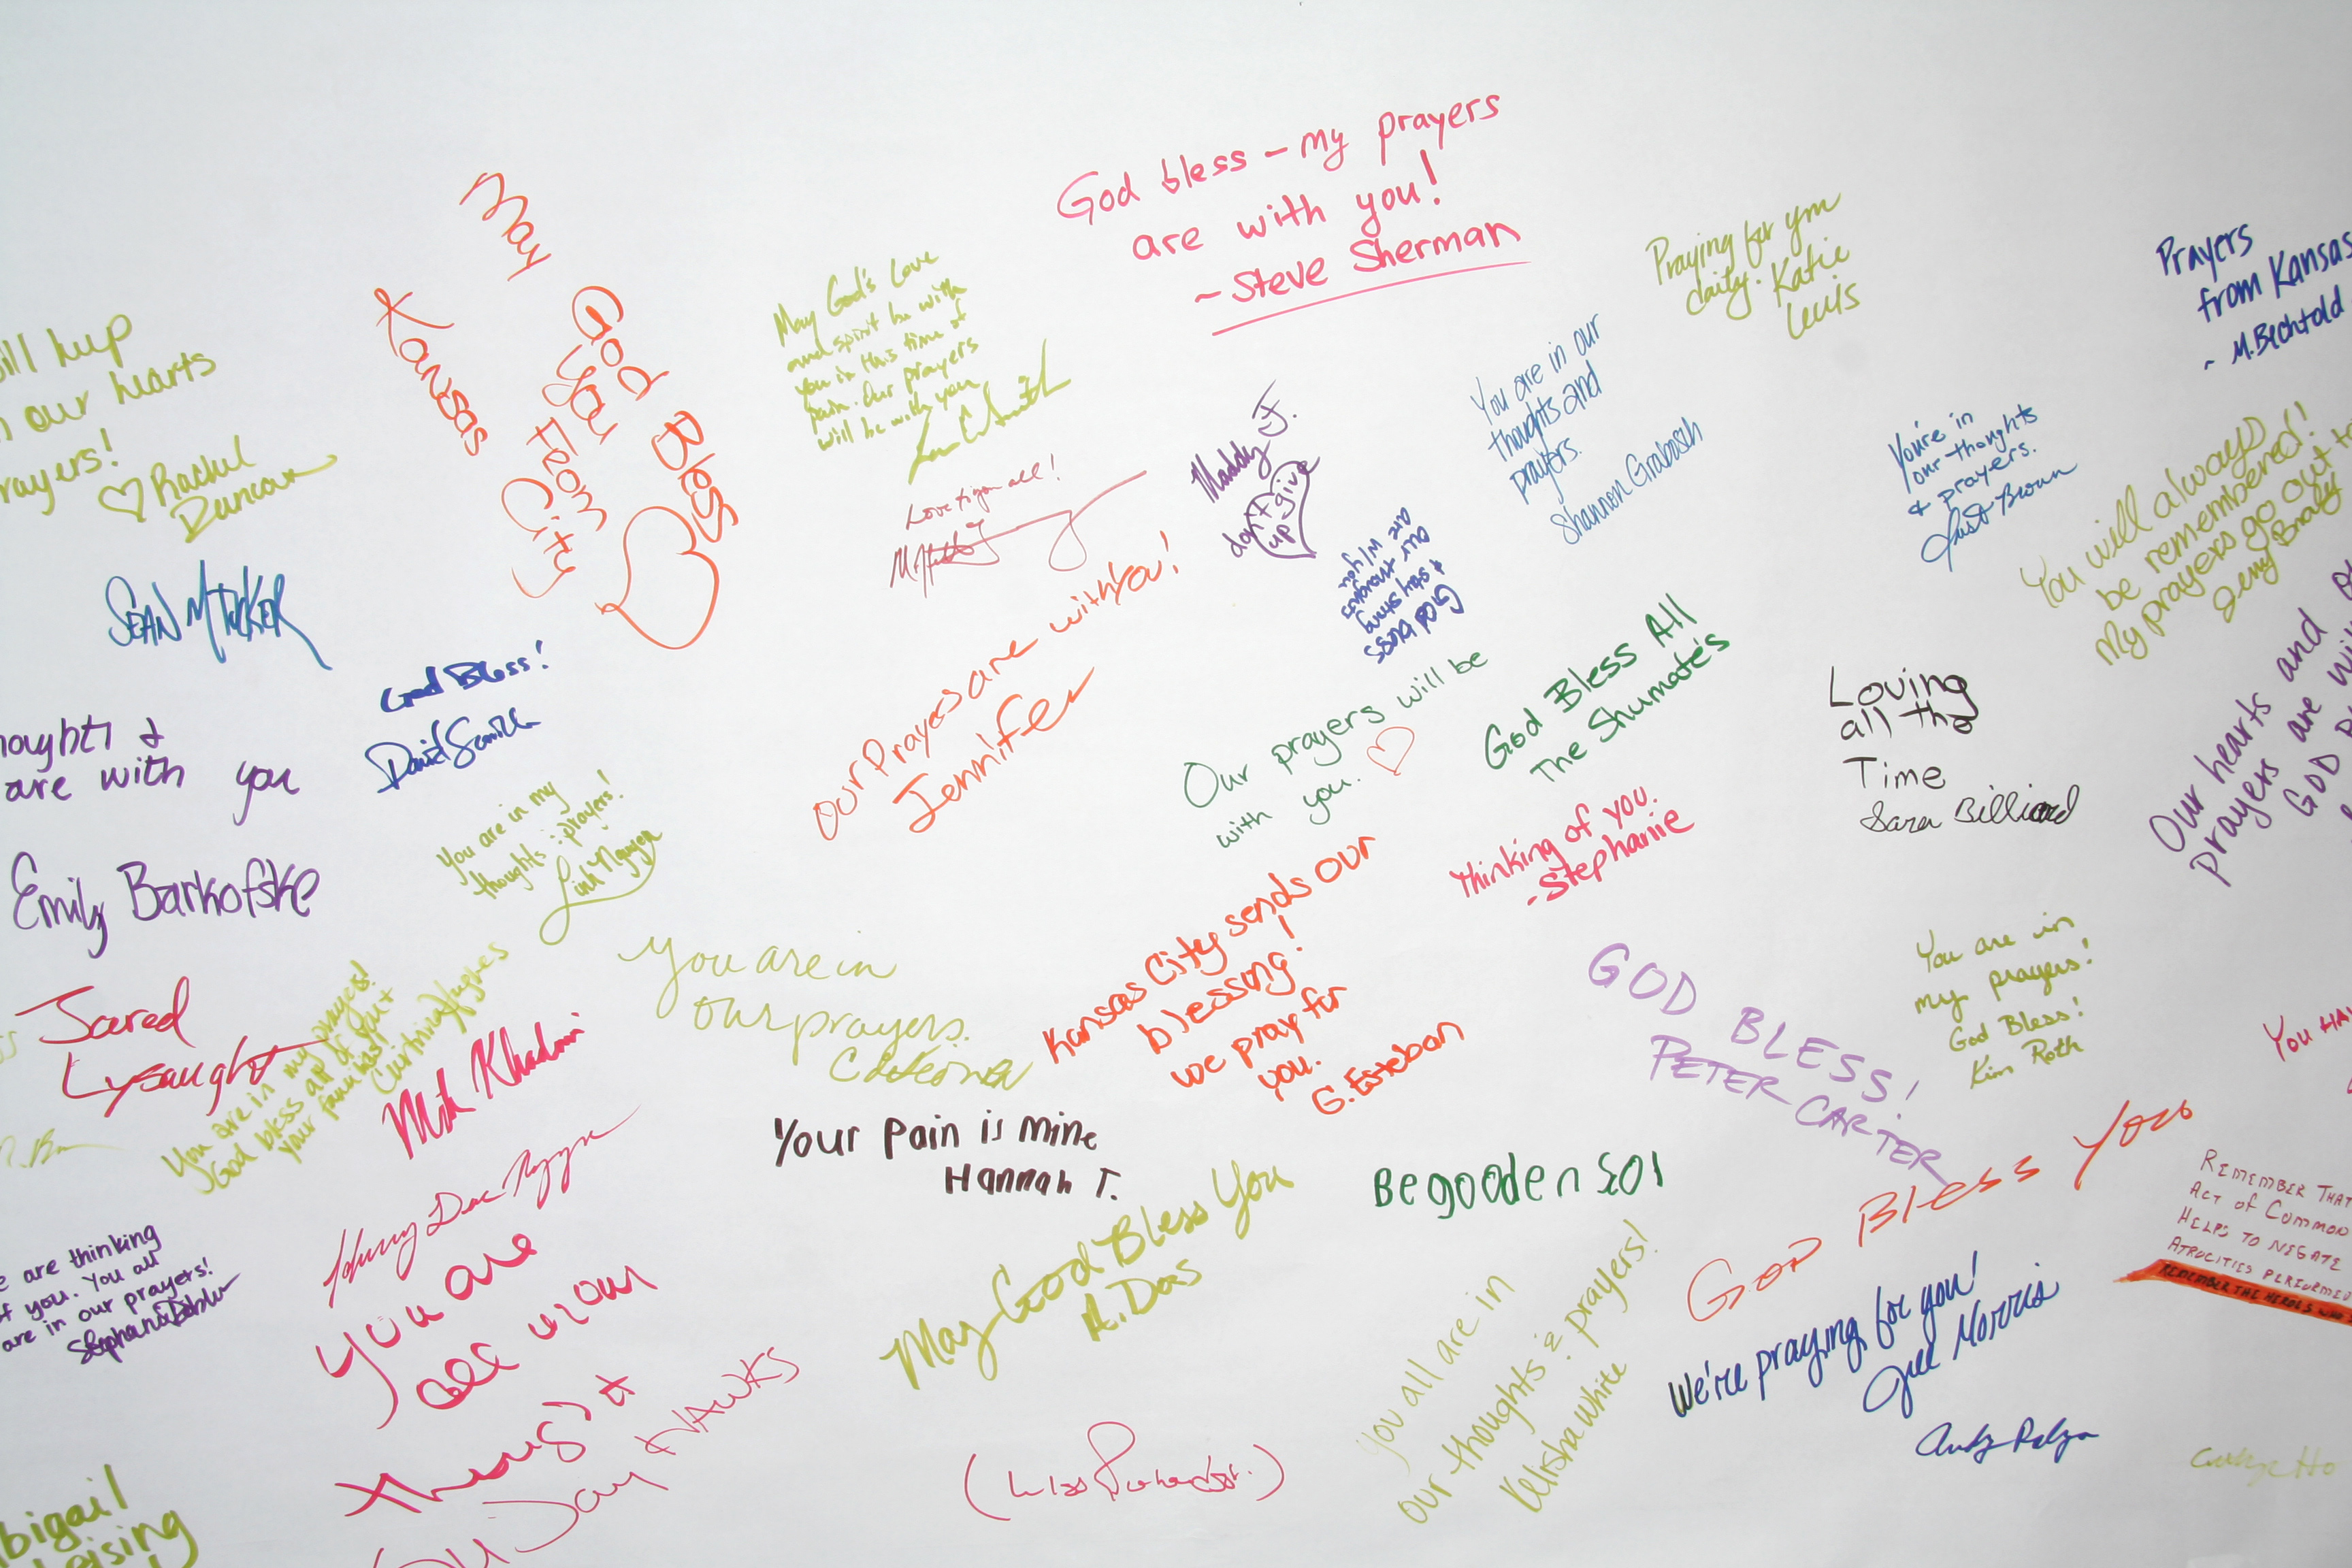 God bless – my prayers
are with you!
~ Steve Sherman
May God Bless
you
From
Kansas
City
May God's Love
and spirit be with
you in this time of
pain. Our prayers
will be with you
Praying for you
daily. Katie
Lewis
Prayers
from Kansas
~ M. Bechtold
will keep
our hearts
rayers!
Rachel
Duncan
You are in our
thoughts and
prayers.
Shannon Grabosch
Maddy J.
don't give
up
You're in
our thoughts
& prayers.
Just Brown
You will always
be remembered!
My prayers go out to
Jenny Brady
Love to you all!
God bless
& stay strong
our thoughts
are w/ you
SEAN M TUCKER
God Bless!
David Smith
Our Prayers are with You!
Jennifer
Our prayers will be
with you.
God Bless All
The Shumate's
Loving
all the
Time
Sara Billiard
Our hearts and
prayers are
GOD
houghts &
are with you
Emily Barkofske
You are in my
thoughts & prayers!
Linh Nguyen
Thinking of you.
- Stephanie
Kansas City sends our
blessing!
we pray for
you.
G. Esteban
You are in
our prayers.
GOD BLESS!
PETER CARTER
You are in
my prayers!
God Bless!
Kim Roth
YOU HA
Jared
Lysaught
You are in my prayers!
God bless all of you &
your families
Courtney Hughes
Khadmi
Your Pain is Mine
Hannah T.
Begooden SO1
God Bless You
REMEMBER THAT
ACT of COMMON
HELPS TO NEGATE
ATROCITIES PERFORMED
REMEMBER THE HEROES
e are thinking
of you. You all
are in our prayers!
You are
all in our
May God Bless You
A. Das
You all are in
our thoughts & prayers!
Kelisha White
We're praying for you!
Jill Morris
JayHAWKS
bigail